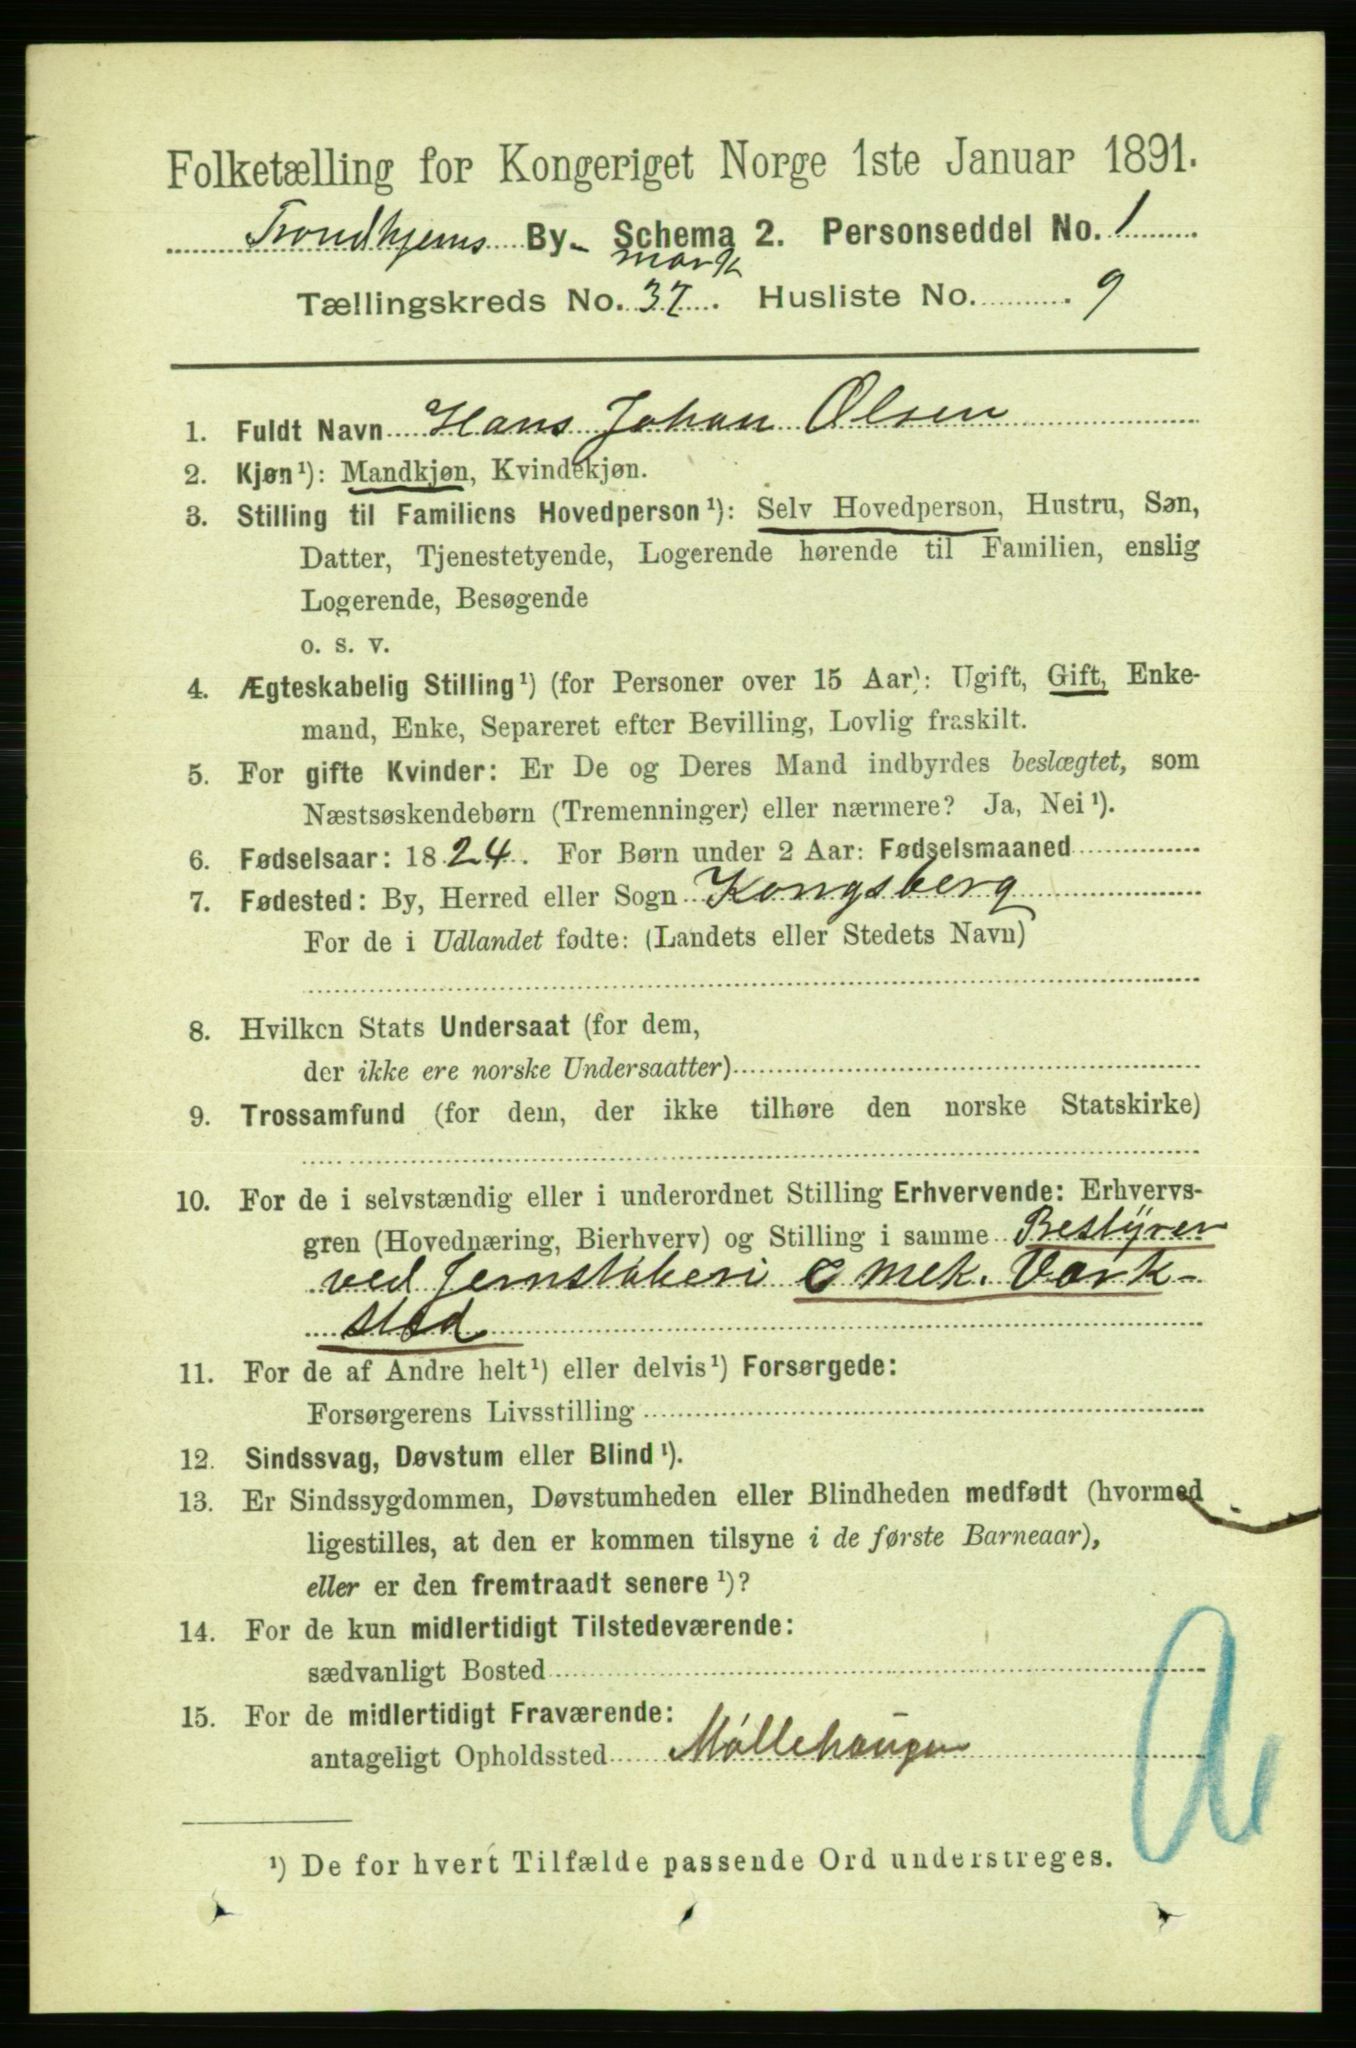 Folketælling for Kongeriget Norge 1ste Januar 1891.
Trondhjems By- Schema 2. Personseddel No. 1
mark
Tællingskreds No. 37. Husliste No. 9
1. Fuldt Navn Hans Johan Olsen
2. Kjøn¹): Mandkjøn, Kvindekjøn.
3. Stilling til Familiens Hovedperson¹): Selv Hovedperson, Hustru, Søn,
Datter, Tjenestetyende, Logerende hørende til Familien, enslig
Logerende, Besøgende
o. s. v.
4. Ægteskabelig Stilling¹) (for Personer over 15 Aar): Ugift, Gift, Enke-
mand, Enke, Separeret efter Bevilling, Lovlig fraskilt.
5. For gifte Kvinder: Er De og Deres Mand indbyrdes beslægtet, som
Næstsøskendebørn (Tremenninger) eller nærmere? Ja, Nei¹).
6. Fødselsaar: 1824. For Børn under 2 Aar: Fødselsmaaned
7. Fødested: By, Herred eller Sogn Kongsberg
For de i Udlandet fødte: (Landets eller Stedets Navn)
8. Hvilken Stats Undersaat (for dem,
der ikke ere norske Undersaatter)
9. Trossamfund (for dem, der ikke tilhøre den norske Statskirke)
10. For de i selvstændig eller i underordnet Stilling Erhvervende: Erhvervs-
gren (Hovednæring, Bierhverv) og Stilling i samme Bestyrer
ved Jernstøberi & mek. Værk-
sted
11. For de af Andre helt¹) eller delvis¹) Forsørgede:
Forsørgerens Livsstilling
12. Sindssvag, Døvstum eller Blind¹).
13. Er Sindssygdommen, Døvstumheden eller Blindheden medfødt (hvormed
ligestilles, at den er kommen tilsyne i de første Barneaar),
eller er den fremtraadt senere¹)?
14. For de kun midlertidigt Tilstedeværende:
sædvanligt Bosted
15. For de midlertidigt Fraværende:
antageligt Opholdssted Møllehaugen
¹) De for hvert Tilfælde passende Ord understreges.